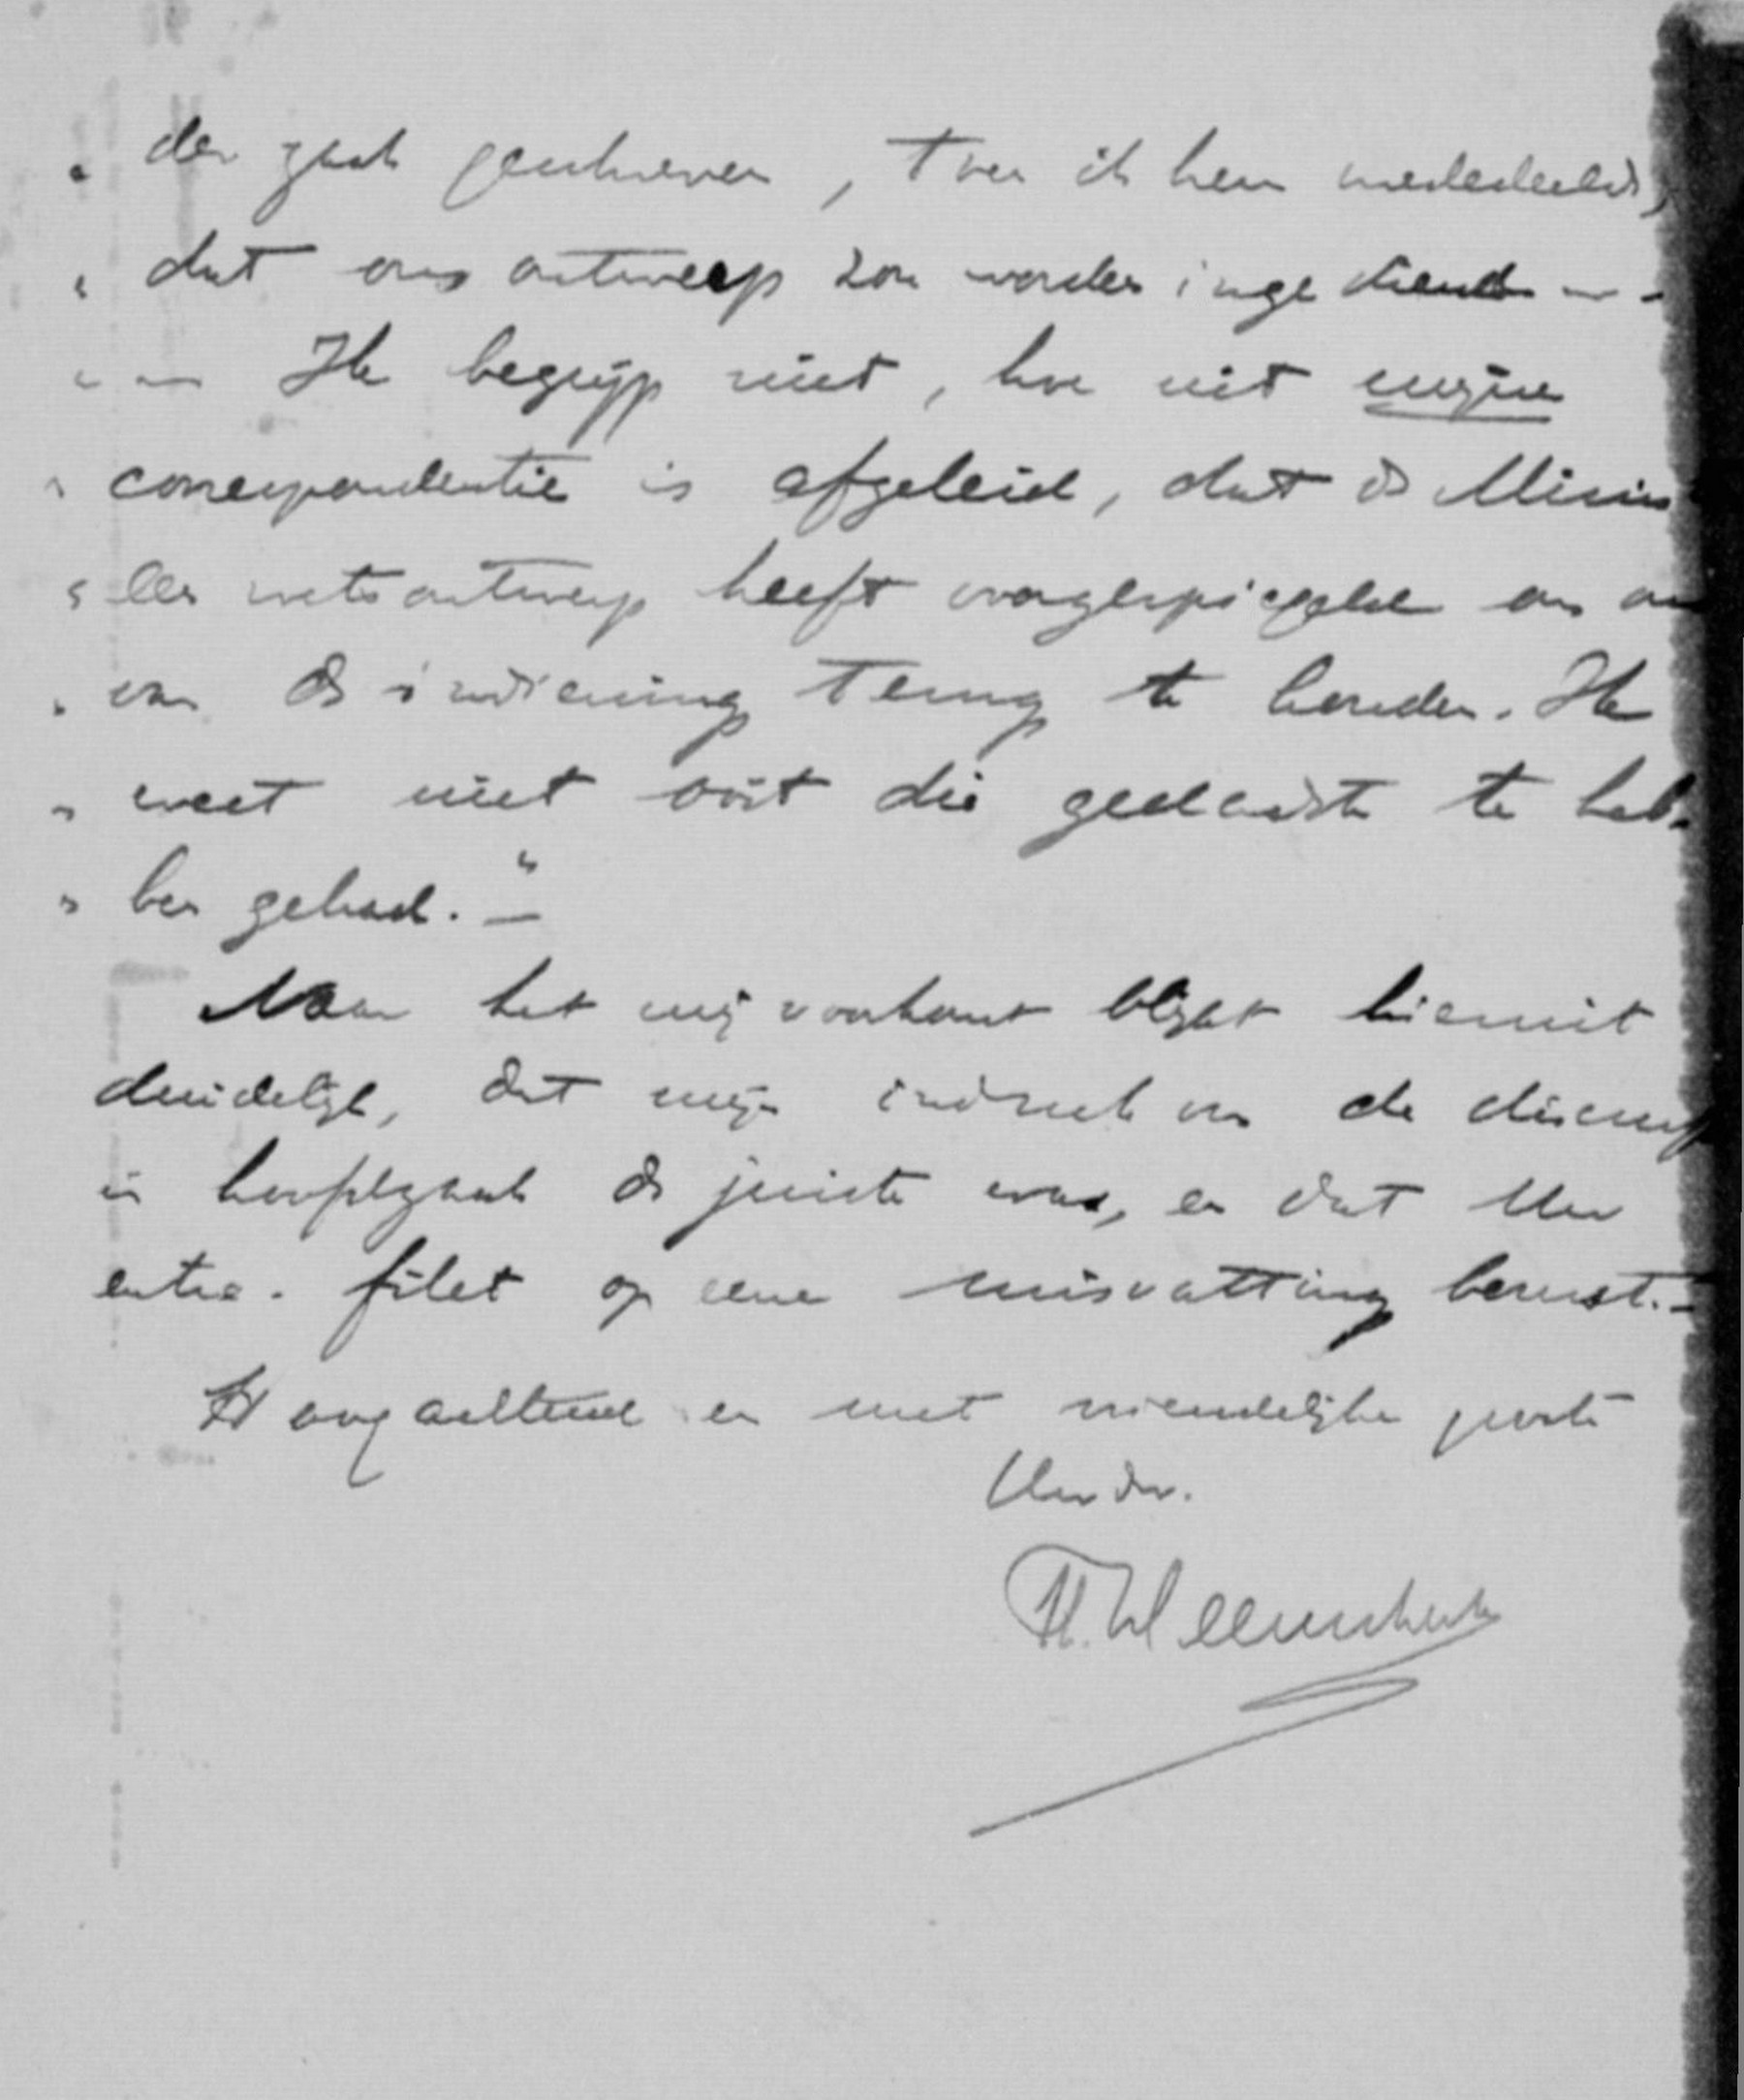 „ der zaak geschreven, toen ik hem mededeelde,
„ dat ons ontwerp zou worden ingediend — -
„ — Ik begrijp niet, hoe uit mijne
„ correspondentie is afgeleid, dat de Minis
„ een wetsontwerp heeft voorgespiegeld om on
„ van de indiening terug te houden. Ik
„ weet niet ooit die gedachte te heb-
„ ben gehad." —
Naar het mij voorkomt blijkt hieruit
duidelijk, dat mijn indruk van de discuss
in hoofdzaak de juiste was, en dat Uw
entre-filet op eene misvatting berust. -
Hoogachtend en met vriendelijke groete
Uw dr.
Th. Heemskerk